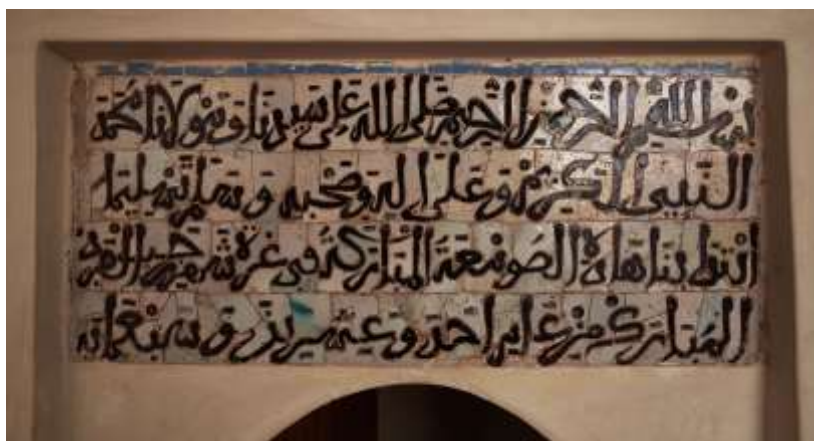 بسم الله الرحمن الرحيم صلى الله على سيدنا ومولانا محمد
النبي الكريم وعلى اله وصحبه وسلم تسليما
ابتدا بنا هاذه الصومعة المباركة في غرة شهر رجب الفرد
المبارك من عام احد وعشرين وسبعماية